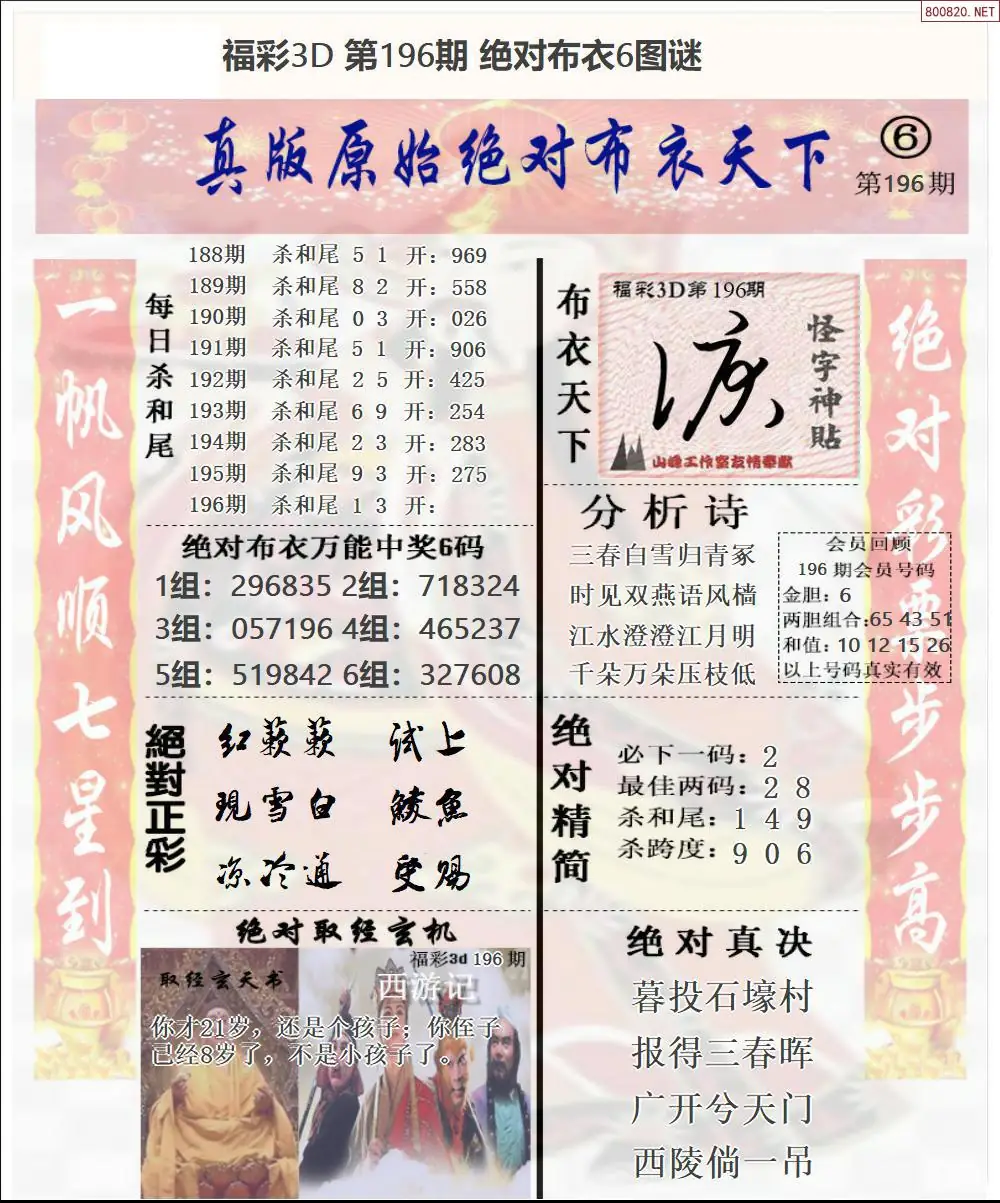 800820.NET
福彩3D 第196期 绝对布衣6图谜
真版原始绝对布衣天下
⑥
第196期
一帆风顺七星到
每日杀和尾
188期 杀和尾 5 1 开：969
189期 杀和尾 8 2 开：558
190期 杀和尾 0 3 开：026
191期 杀和尾 5 1 开：906
192期 杀和尾 2 5 开：425
193期 杀和尾 6 9 开：254
194期 杀和尾 2 3 开：283
195期 杀和尾 9 3 开：275
196期 杀和尾 1 3 开：
绝对布衣万能中奖6码
1组：296835 2组：718324
3组：057196 4组：465237
5组：519842 6组：327608
絕對正彩
红蔌蔌 试上
現雪白 鯪魚
凉冷通 受赐
绝对取经玄机
福彩3d 196 期
取经玄天书
西游记
你才21岁，还是个孩子；你侄子
已经8岁了，不是小孩子了。
布衣天下
福彩3D第196期
怪字神貼
山峰工作室友情奉献
分析诗
三春白雪归青冢
时见双燕语风樯
江水澄澄江月明
千朵万朵压枝低
会员回顾
196 期会员号码
金胆：6
两胆组合:65 43 51
和值：10 12 15 26
以上号码真实有效
绝对精简
必下一码：2
最佳两码：2 8
杀和尾：1 4 9
杀跨度：9 0 6
绝对真决
暮投石壕村
报得三春晖
广开兮天门
西陵倘一吊
绝对彩票步步高